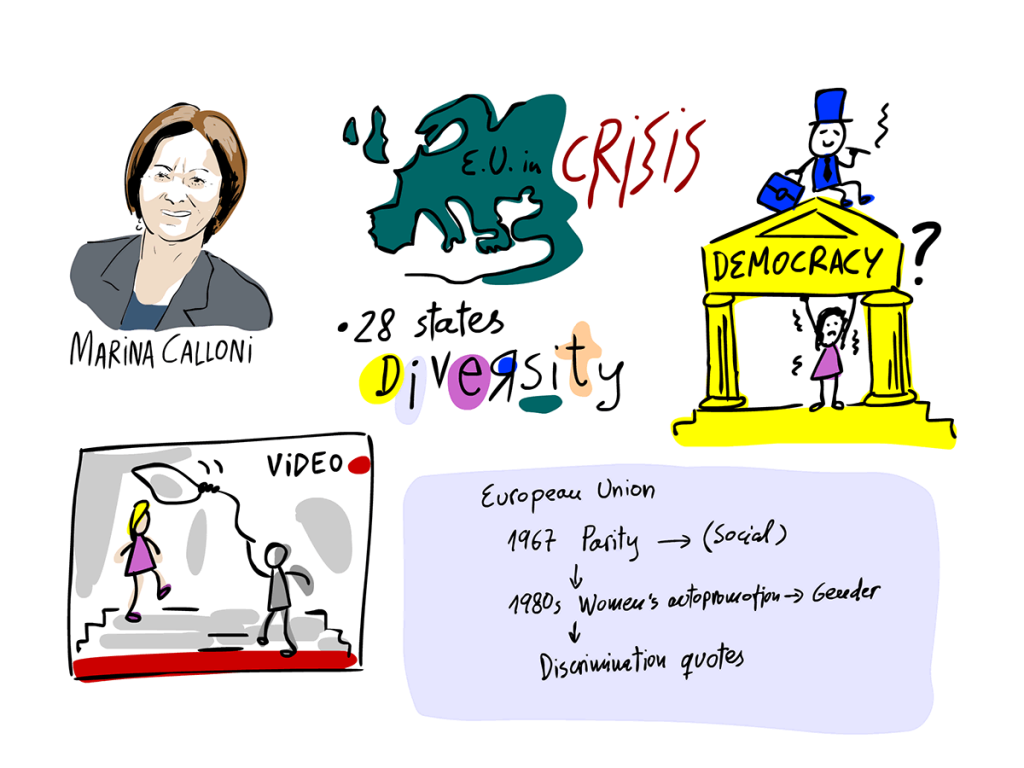 MARINA CALLONI
E.U. in CRISIS
• 28 states
Diversity
DEMOCRACY ?
VIDEO
European Union
1967 Parity → (Social)
↓
1980s Women's autopromotion → Gender
↓
Discrimination quotes